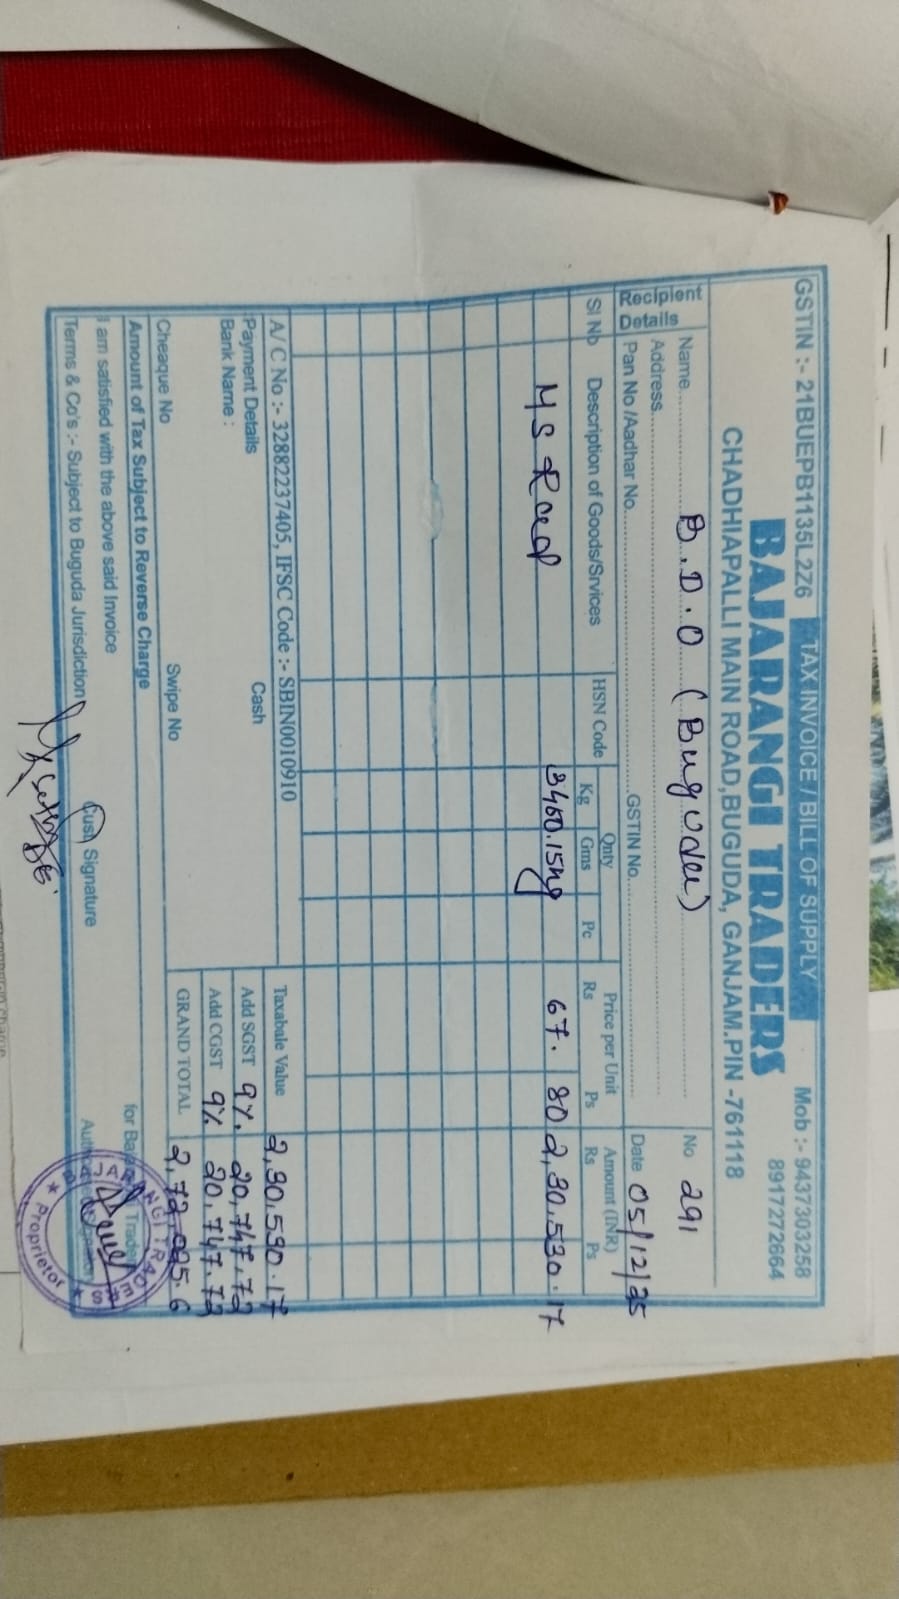 GSTIN :- 21BUEPB1135L2Z6 TAX INVOICE / BILL OF SUPPLY Mob :- 9437303258
8917272664
BAJARANGI TRADERS
CHADHIAPALLI MAIN ROAD,BUGUDA, GANJAM.PIN -761118
Recipient Details
Name B.D.O (Buguda) No 291
Address
Pan No /Aadhar No GSTIN No. Date 05/12/25
Sl No Description of Goods/Srvices HSN Code Qnty Kg Gms Pc Price per Unit Rs Ps Amount (INR) Rs Ps
MS Rod 3400.15kg 67. 80 2,30,530.17
A/ C No :- 32882237405, IFSC Code :- SBIN0010910 Taxabale Value 2,30,530.17
Payment Details Cash Add SGST 9%. 20,747.72
Bank Name : Add CGST 9% 20,747.72
Cheaque No Swipe No GRAND TOTAL 2,72,025.6
Amount of Tax Subject to Reverse Charge
I am satisfied with the above said Invoice
Terms & Co's :- Subject to Buguda Jurisdiction Signature
BAJARANGI TRADERS
Proprietor